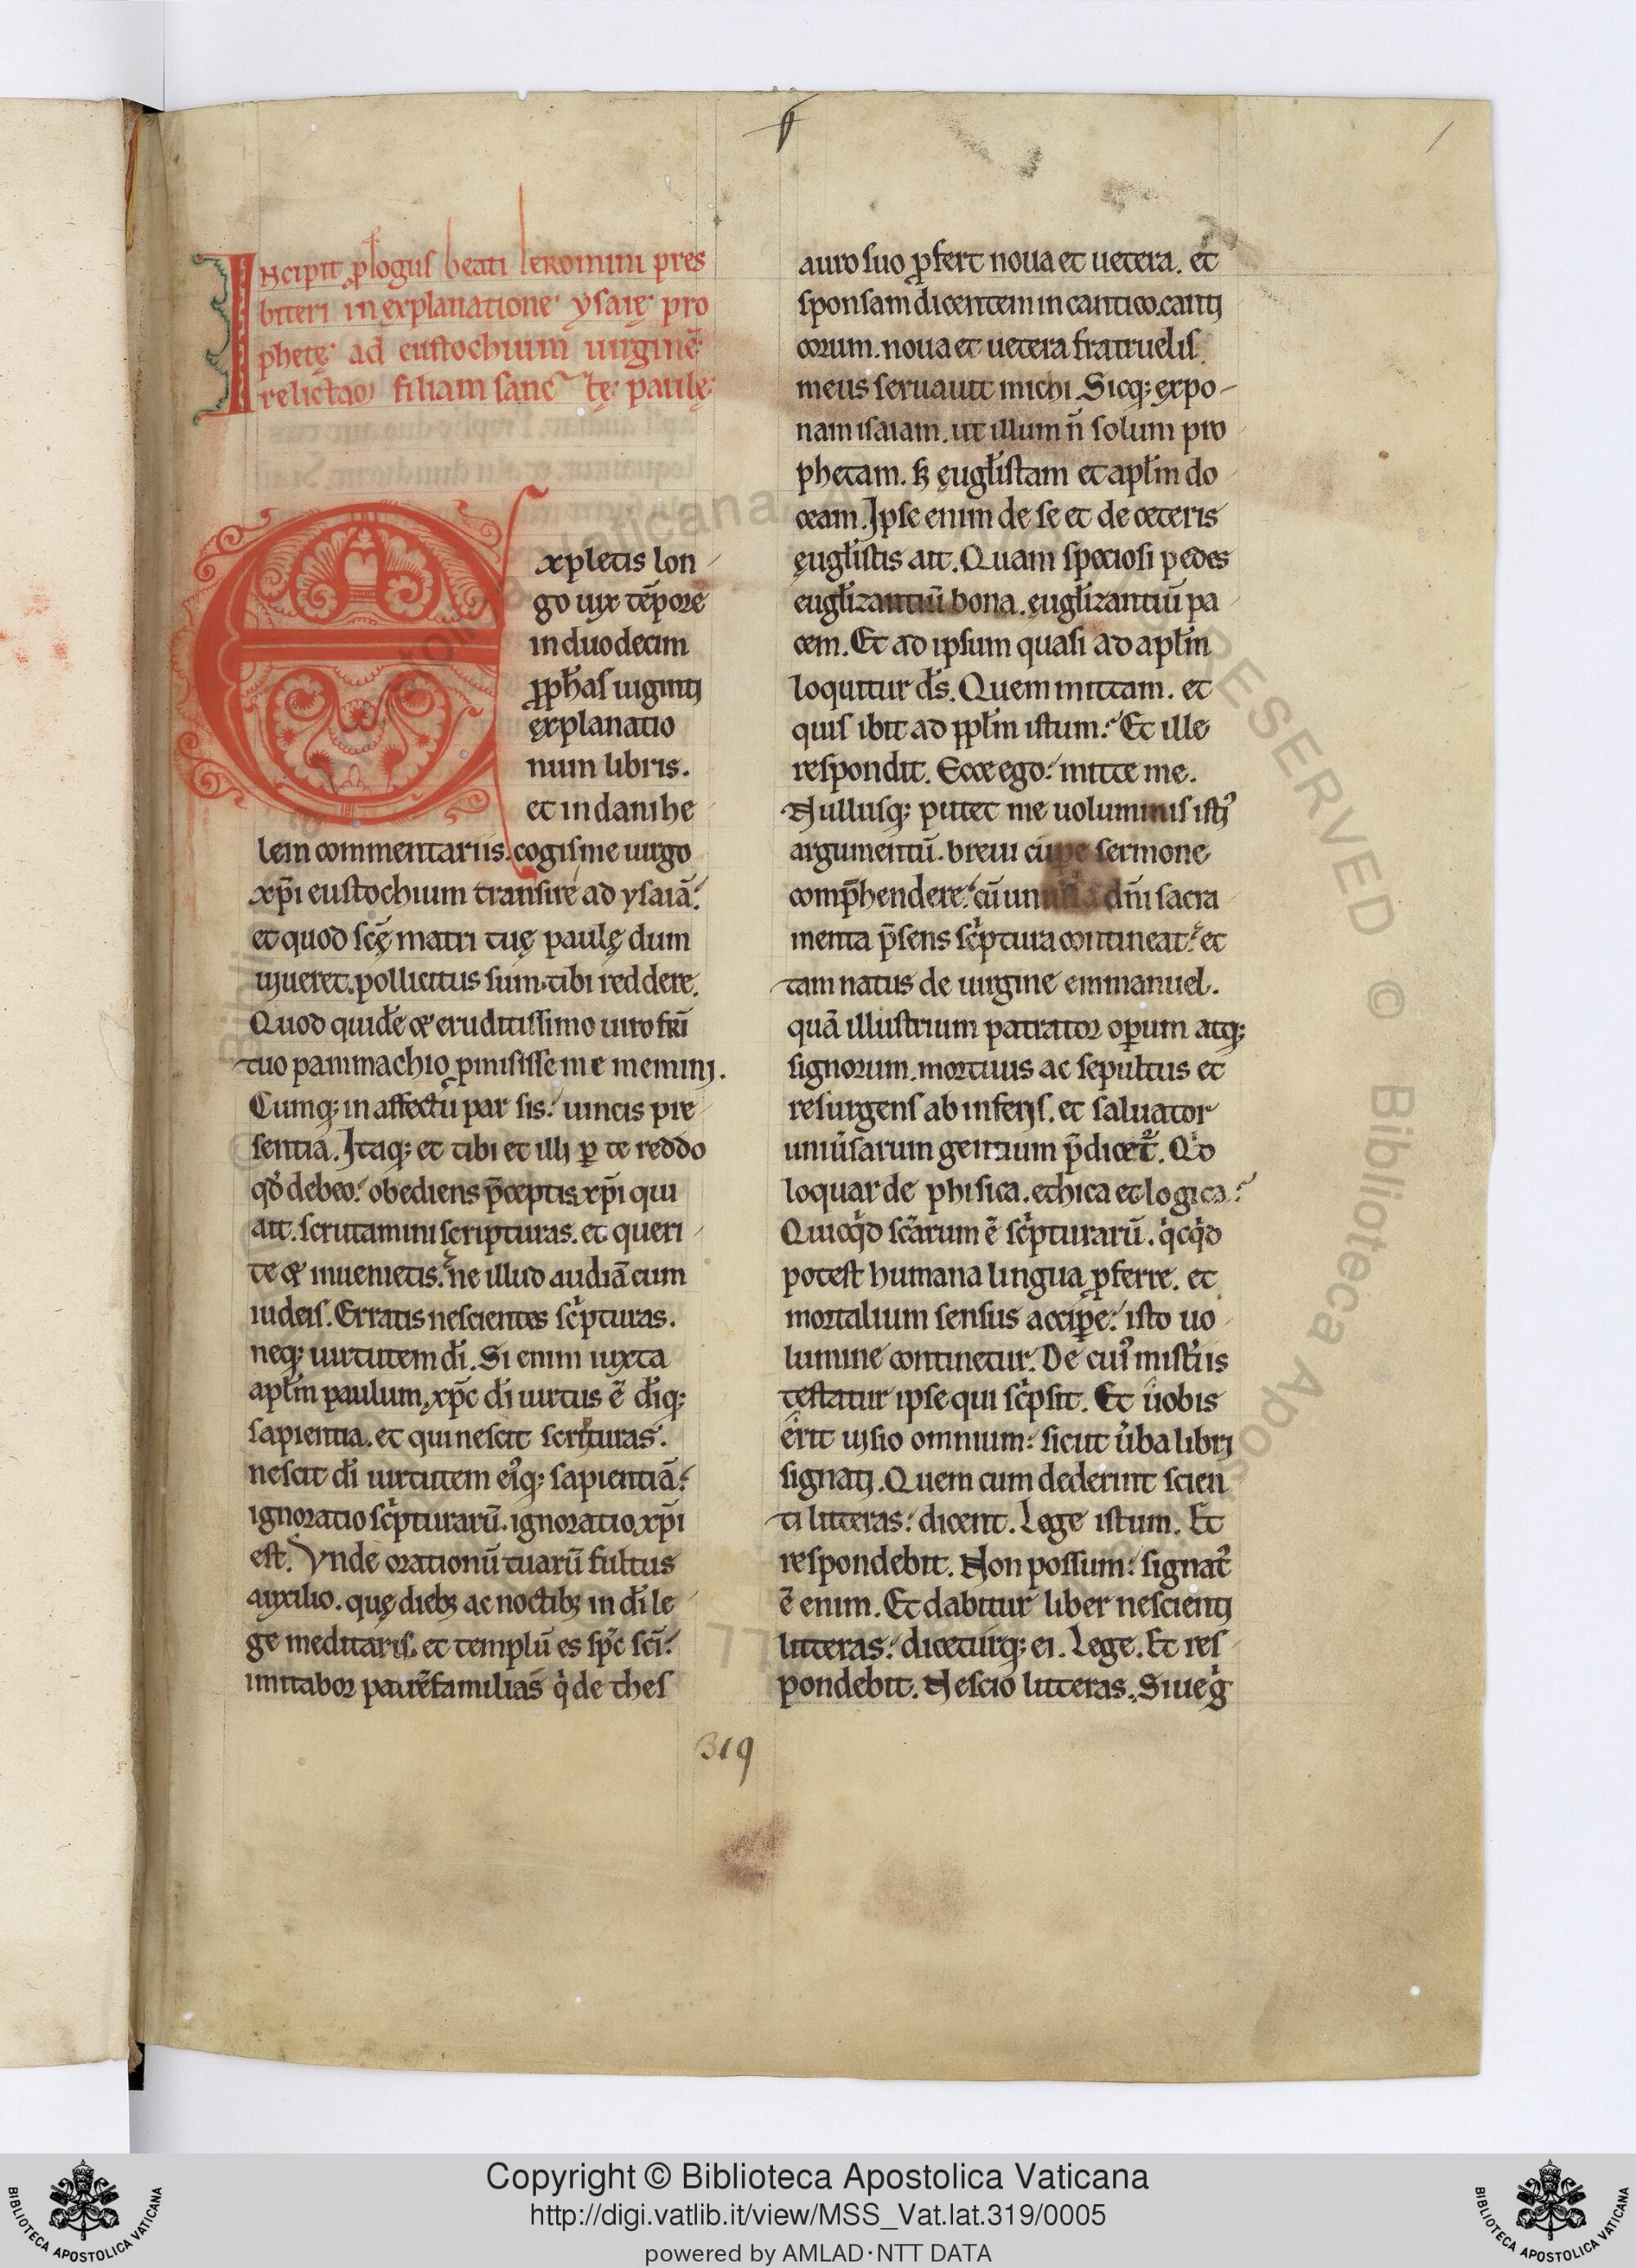 1
Incipit ꝓlogus beati Ieronimi pres
biteri in explanatione ysaię pro
phetę ad eustochium uirginē
relictam filiam sanctę paulę
Expletis lon
go uix tēpore
in duodecim
ꝓphas uiginti
explanatio
num libris.
et in danihe
lem commentariis. cogis me uirgo
xp̄i eustochium transire ad ysaiā.
et quod scę̄ matri tuę paulę dum
uiueret. pollicitus sum. tibi reddere.
Quod quidē & eruditissimo uiro fr̄i
tuo pammachio ꝓmisisse me memini.
Cumq; in affectu par sis. uincis pre
sentia. Itaq; et tibi et illi ꝑ te reddo
qđ debeo. obediens p̄ceptis xp̄i qui
ait. scrutamini scripturas. et queri
te & inuenietis. ne illud audiā cum
iudeis. Erratis nescientes sc̓pturas.
neq; uirtutem dī. Si enim iuxta
apłm paulum, xp̄c dī uirtus ē dīq;
sapientia. et qui nescit scripturas.
nescit dī uirtutem ei᾽q; sapientiā.
ignoratio sc̓pturarū. ignoratio xp̄i
est. Vnde orationū tuarū fultus
auxilio. quę dieb; ac noctib; in dī le
ge meditaris. et templū es sp̄c sc̄i.
imitabor patrēfamilias q̓ de thes
auro suo ꝓfert noua et uetera. et
sponsam dicentem in cantico. canti
corum. noua et uetera fratruelis
meus seruauit michi. Sicq; expo-
nam isaiam. ut illum n̄ solum pro
phetam. ꝫ ęugłistam et apłm do
ceam. Ipse enim de se et de ceteris
ęugłistis ait. Quam speciosi pedes
eugłizantiū bona. ęugłizantiū pa
cem. Et ad ipsum quasi ad apłm
loquitur d̄s. Quem mittam. et
quis ibit ad ppłm istum. Et ille
respondit. Ecce ego. mitte me.
Nullusq; putet me uoluminis isti᾽
argumentū. breui cupe sermone
comp̄hendere. cū uniuersa dn̄i sacra
menta p̄sens sc̓ptura contineat. et
tam natus de uirgine emmanuel.
quā illustrium patrator oꝑum atq;
signorum. mortuus ac sepultus et
resurgens ab inferis. et saluator
uniu̓sarum gentium p̄dicet᷑. Qđ
loquar de phisica. ethica et logica.
Quicq̓d sc̄arum ē sc̓pturarū. q̓cq̓d
potest humana lingua ꝓferre. et
mortalium sensus acciꝑe. isto uo
lumine continetur. De cui᾽ mist̓iis
testatur ipse qui sc̓psit. Et u̓obis
erit uisio omnium. sicut u̓ba libri
signati. Quem cum dederint scien
ti litteras. dicent. Lege istum. Et
respondebit. Non possum. signat᾽
ē enim. Et dabitur liber nescienti
litteras. diceturq; ei. Lege. Et res
pondebit. Nescio litteras. Siue g̓
319
© Biblioteca Apostolica Vaticana
Copyright © Biblioteca Apostolica Vaticana
http://digi.vatlib.it/view/MSS_Vat.lat.319/0005
powered by AMLAD·NTT DATA
BIBLIOTECA APOSTOLICA VATICANA
BIBLIOTECA APOSTOLICA VATICANA